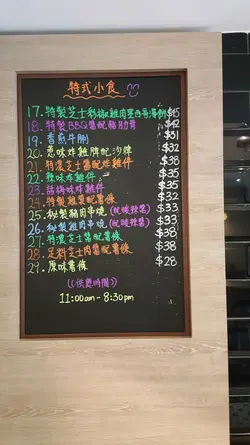 特式小食
17. 特製芝士彩椒雞肉墨西哥薄餅 $45
18. 特製BBQ醬配豬肋骨 $42
19. 香煎牛脷 $31
20. 惹味炸雞髀配沙律 $32
21. 特濃芝士醬配炸雞件 $38
22. 辣味炸雞件 $35
23. 話梅味炸雞件 $35
24. 特製雞翼薯條 $33
25. 秘製豬肉串燒 (配酸辣醬) $33
26. 秘製雞肉串燒 (配酸辣醬) $33
27. 特濃芝士醬配薯條 $38
28. 足料芝士肉醬配薯條 $38
29. 原味薯條 $28
((供應時間))
11:00am - 8:30pm